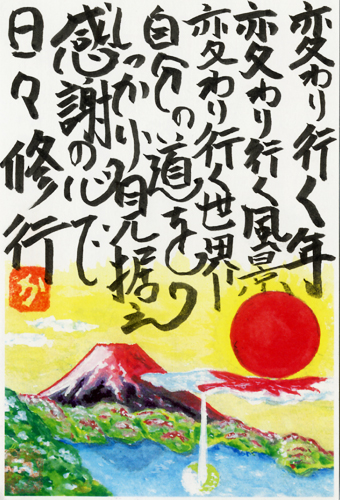 変わり行く年
変わり行く風景
変わり行く世界
自分の道を
しっかり見据え
感謝の心で
日々修行
か